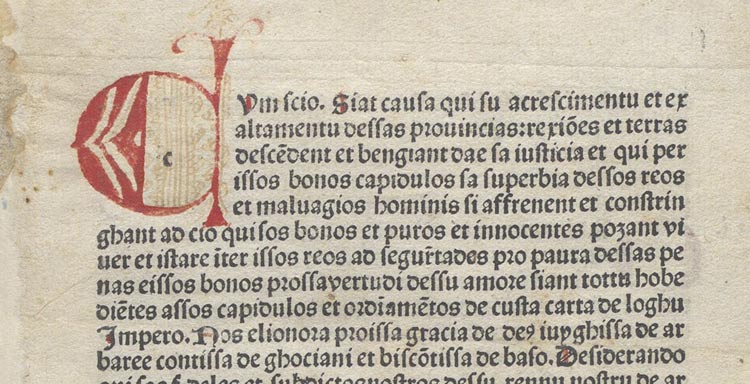 c
Vm scio. Siat causa qui su acrescimentu et ex
altamentu dessas prouincias: rexiões et terras
descẽdent et bengiant dae sa iusticia et qui per
issos bonos capidulos sa superbia dessos reos
et maluagios hominis si affrenent et constrin
ghant ad cio qui sos bonos et puros et innocentes pozant vi
uer et istare ĩter issos reos ad segurtades pro paura dessas pe
nas eissos bonos prossavertudi dessu amore siant totts hobe
diẽtes assos capidulos et ordĩamẽtos de custa carta de loghu
Impero. Nos elionora proissa gracia de deus iuyghissa de ar
baree contissa de ghociani et biscõtissa de baso. Desiderando